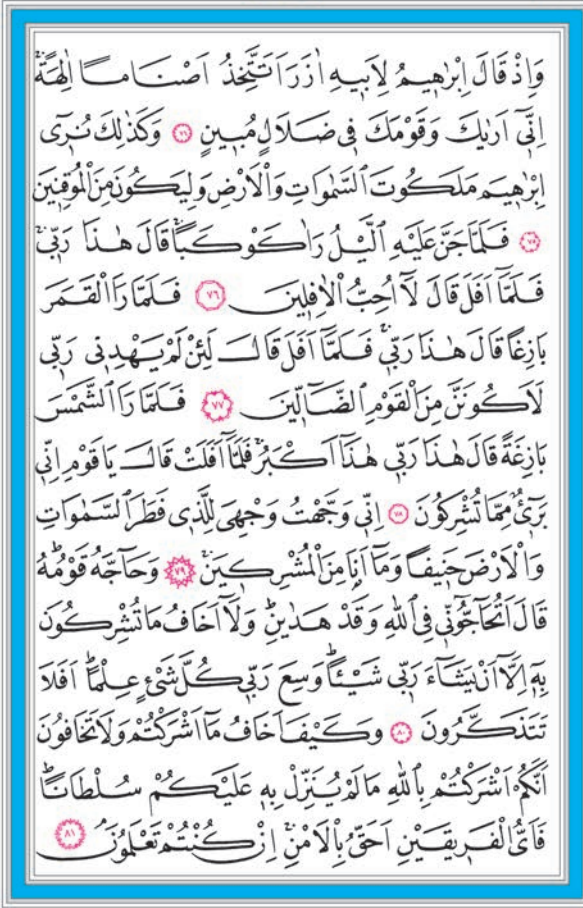 وَاِذْ قَالَ اِبْرٰه۪يمُ لِاَب۪يهِ اٰزَرَ اَتَتَّخِذُ اَصْنَامًا اٰلِهَةًۚ
اِنّ۪ٓي اَرٰيكَ وَقَوْمَكَ ف۪ي ضَلَالٍ مُب۪ينٍ ﴿٧٤﴾ وَكَذٰلِكَ نُر۪ٓي
اِبْرٰه۪يمَ مَلَكُوتَ السَّمٰوَاتِ وَالْاَرْضِ وَلِيَكُونَ مِنَ الْمُوقِن۪ينَ
﴿٧٥﴾ فَلَمَّا جَنَّ عَلَيْهِ الَّيْلُ رَاٰ كَوْكَبًاۚ قَالَ هٰذَا رَبّ۪يۚ
فَلَمَّٓا اَفَلَ قَالَ لَٓا اُحِبُّ الْاٰفِل۪ينَ ﴿٧٦﴾ فَلَمَّا رَاَ الْقَمَرَ
بَازِغًا قَالَ هٰذَا رَبّ۪يۚ فَلَمَّٓا اَفَلَ قَالَ لَئِنْ لَمْ يَهْدِن۪ي رَبّ۪ي
لَاَكُونَنَّ مِنَ الْقَوْمِ الضَّٓالّ۪ينَ ﴿٧٧﴾ فَلَمَّا رَاَ الشَّمْسَ
بَازِغَةً قَالَ هٰذَا رَبّ۪ي هٰذَٓا اَكْبَرُۚ فَلَمَّٓا اَفَلَتْ قَالَ يَا قَوْمِ اِنّ۪ي
بَر۪ٓيءٌ مِمَّا تُشْرِكُونَ ﴿٧٨﴾ اِنّ۪ي وَجَّهْتُ وَجْهِيَ لِلَّذ۪ي فَطَرَ السَّمٰوَاتِ
وَالْاَرْضَ حَن۪يفًا وَمَٓا اَنَا مِنَ الْمُشْرِك۪ينَۚ ﴿٧٩﴾ وَحَٓاجَّهُ قَوْمُهُۜ
قَالَ اَتُحَٓاجُّٓونّ۪ي فِي اللّٰهِ وَقَدْ هَدٰينِۜ وَلَٓا اَخَافُ مَا تُشْرِكُونَ
بِه۪ٓ اِلَّٓا اَنْ يَشَٓاءَ رَبّ۪ي شَيْـًٔاۜ وَسِعَ رَبّ۪ي كُلَّ شَيْءٍ عِلْمًاۜ اَفَلَا
تَتَذَكَّرُونَ ﴿٨٠﴾ وَكَيْفَ اَخَافُ مَٓا اَشْرَكْتُمْ وَلَا تَخَافُونَ
اَنَّكُمْ اَشْرَكْتُمْ بِاللّٰهِ مَا لَمْ يُنَزِّلْ بِه۪ عَلَيْكُمْ سُلْطَانًاۜ
فَاَيُّ الْفَر۪يقَيْنِ اَحَقُّ بِالْاَمْنِۚ اِنْ كُنْتُمْ تَعْلَمُونَۢ ﴿٨١﴾